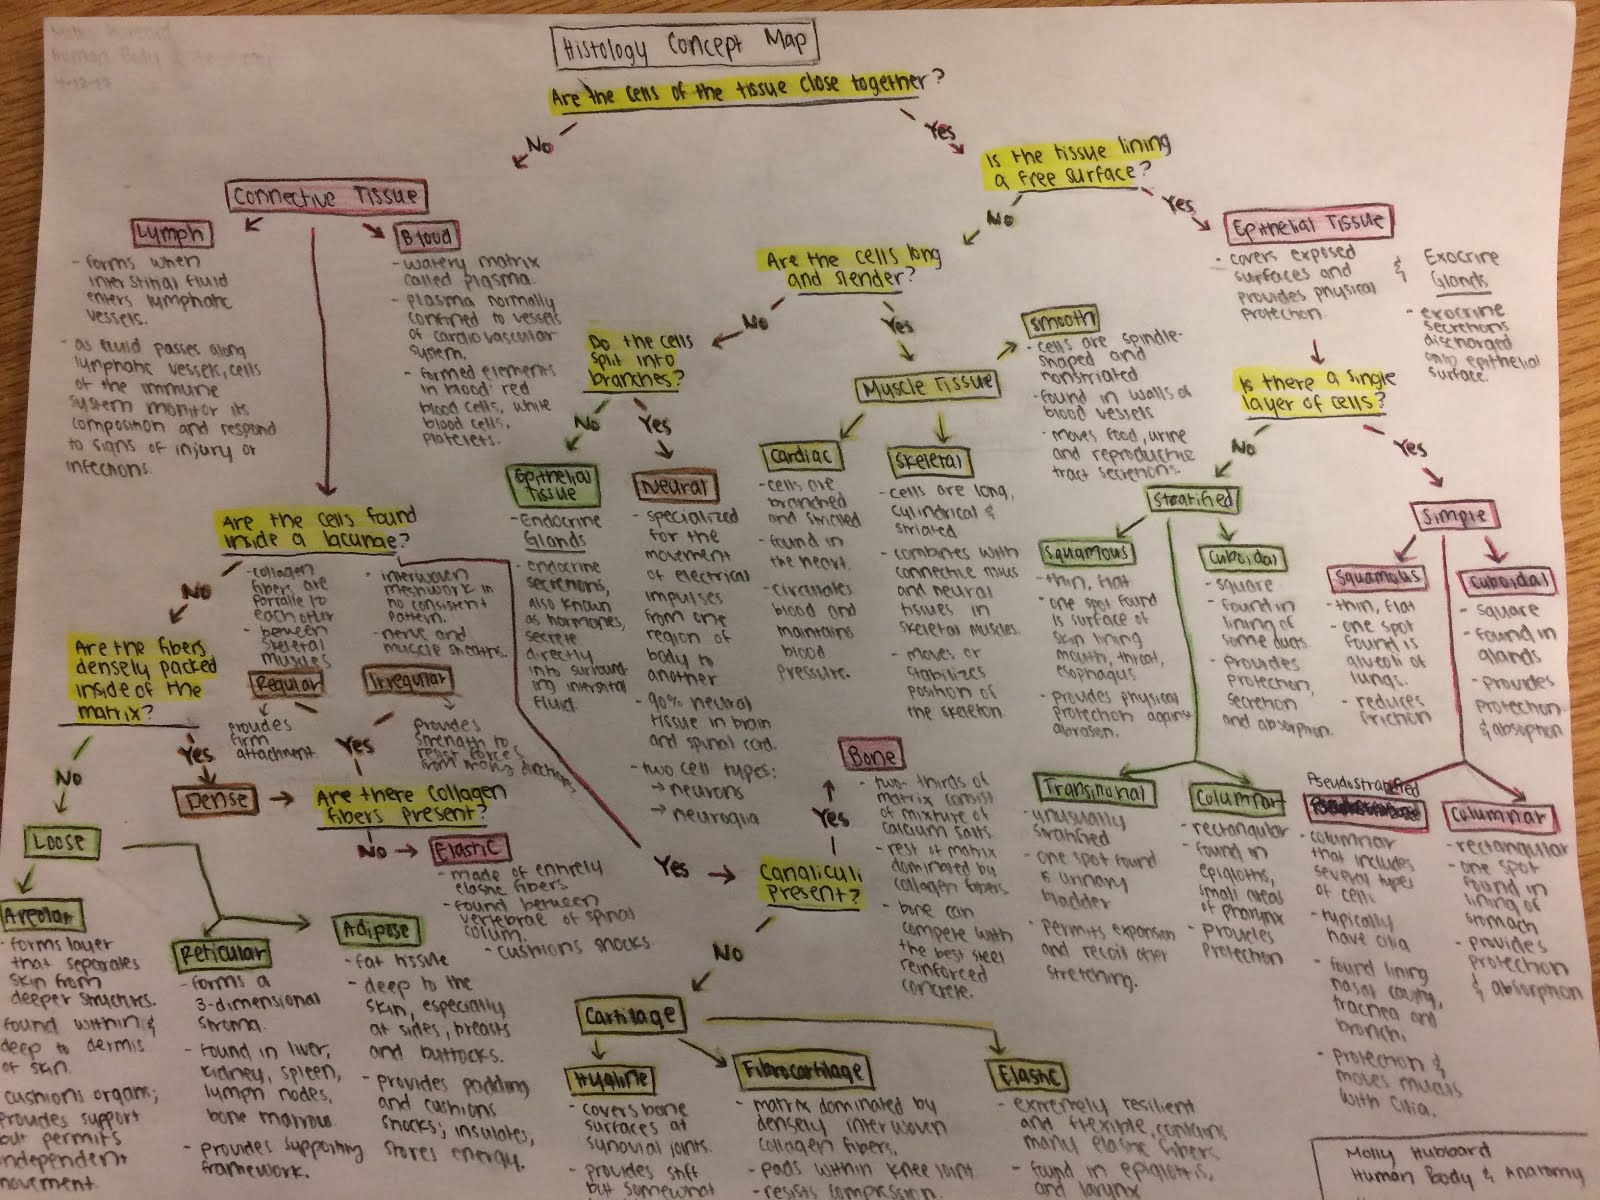 Human Body &
4-12-17
Histology Concept Map
Are the cells of the tissue close together?
No
Yes
Is the tissue lining
a free surface?
No
Yes
Connective Tissue
Lymph
- forms when
interstitial fluid
enters lymphatic
vessels.
- as fluid passes along
lymphatic vessels, cells
of the immune
system monitor its
composition and respond
to signs of injury or
infections.
Blood
- watery matrix
called plasma.
- plasma normally
confined to vessels
of cardiovascular
system.
- formed elements
in blood: red
blood cells, white
blood cells,
platelets.
Are the cells long
and slender?
No
Yes
Epithelial Tissue
- covers exposed
surfaces and
provides physical
protection.
& Exocrine
Glands
- exocrine
secretions
discharged
onto epithelial
surface.
Do the cells
split into
branches?
No
Yes
Muscle Tissue
Smooth
- cells are spindle-
shaped and
nonstriated
- found in walls of
blood vessels
- moves food, urine
and reproductive
tract secretions.
Is there a single
layer of cells?
No
Yes
Epithelial
Tissue
- Endocrine
Glands
- endocrine
secretions,
also known
as hormones,
secrete
directly
into surround
ing intersital
fluid.
Neural
- specialized
for the
movement
of electrical
impulses
from one
region of
body to
another
- 90% neural
tissue in brain
and spinal cord.
- two cell types:
→ neurons
→ neuroglia
Cardiac
- cells are
branched
and striated
- found in
the heart.
- circulates
blood and
maintains
blood
pressure.
Skeletal
- cells are long,
cylindrical &
striated
- combines with
connective tissus
and neural
tissues in
skeletal muscles.
- moves or
stabilizes
position of
the skeleton.
Stratified
Squamous
- thin, flat
- one spot found
is surface of
skin lining
mouth, throat,
esophagus
- provides physical
protection against
abrasion.
Cuboidal
- square
- found in
lining of
some ducts.
- provides
protection,
secretion
and absorption.
Simple
Squamous
- thin, flat
- one spot
found is
alveoli of
lungs.
- reduces
friction
Cuboidal
- square
- found in
glands
- provides
protection
& absoption
Are the cells found
inside a lacunae?
No
- collagen
fibers are
parralle to
each other
- between
skeletal
muscles
- interwoven
meshwork in
no consistent
pattern.
- nerve and
muscle sheaths.
Regular
Irregular
provides
firm
attachment
provides
strength to
resist forces
from many directions
Are the fibers
densely packed
inside of the
matrix?
No
Yes
Yes
Dense
Are there collagen
fibers present?
No
Elastic
- made of entirely
elastic fibers
- found between
vertebrae of spinal
column.
- cushions shocks.
Yes
Canaliculi
present?
Yes
No
Bone
- two-thirds of
matrix consist
of mixture of
calcium salts
- rest of matrix
dominated by
collagen fibers.
- bone can
compete with
the best steel
reinforced
concrete.
Transitional
- unusually
stratified
- one spot found
is urinary
bladder
- Permits expansion
and recoil after
stretching.
Columnar
- rectangular
- found in
epiglottis,
small areas
of pharynx
- provides
Protection
Pseudostratified
- columnar
that includes
several types
of cell
- typically
have cilia
- found lining
nasal cavity,
trachea and
bronchi.
- protection &
moves mucus
with cilia.
Columnar
- rectangular
- one spot
found in
lining of
stomach
- provides
protection
& absorption
Loose
Areolar
- forms layer
that separates
skin from
deeper structures.
found within &
deep to dermis
of skin.
cushions organs;
provides support
but permits
independent
movement.
Reticular
- forms a
3-dimensional
stroma.
- found in liver,
kidney, spleen,
lymph nodes,
bone marrow.
- provides supporting
framework.
Adipose
- fat tissue
- deep to the
skin, especially
at sides, breasts
and buttocks.
- provides padding
and cushions
shocks; insulates,
stores energy.
Cartilage
Hyaline
- covers bone
surfaces at
synovial joints.
- provides stiff
but somewhat
Fibrocartilage
- matrix dominated by
densely interwoven
collagen fibers.
- pads within knee joint.
- resists compression.
Elastic
- extremely resilient
and flexible, contains
many elastic fibers
- found in epiglottis,
and larynx
Molly Hubbard
Human Body & Anatomy